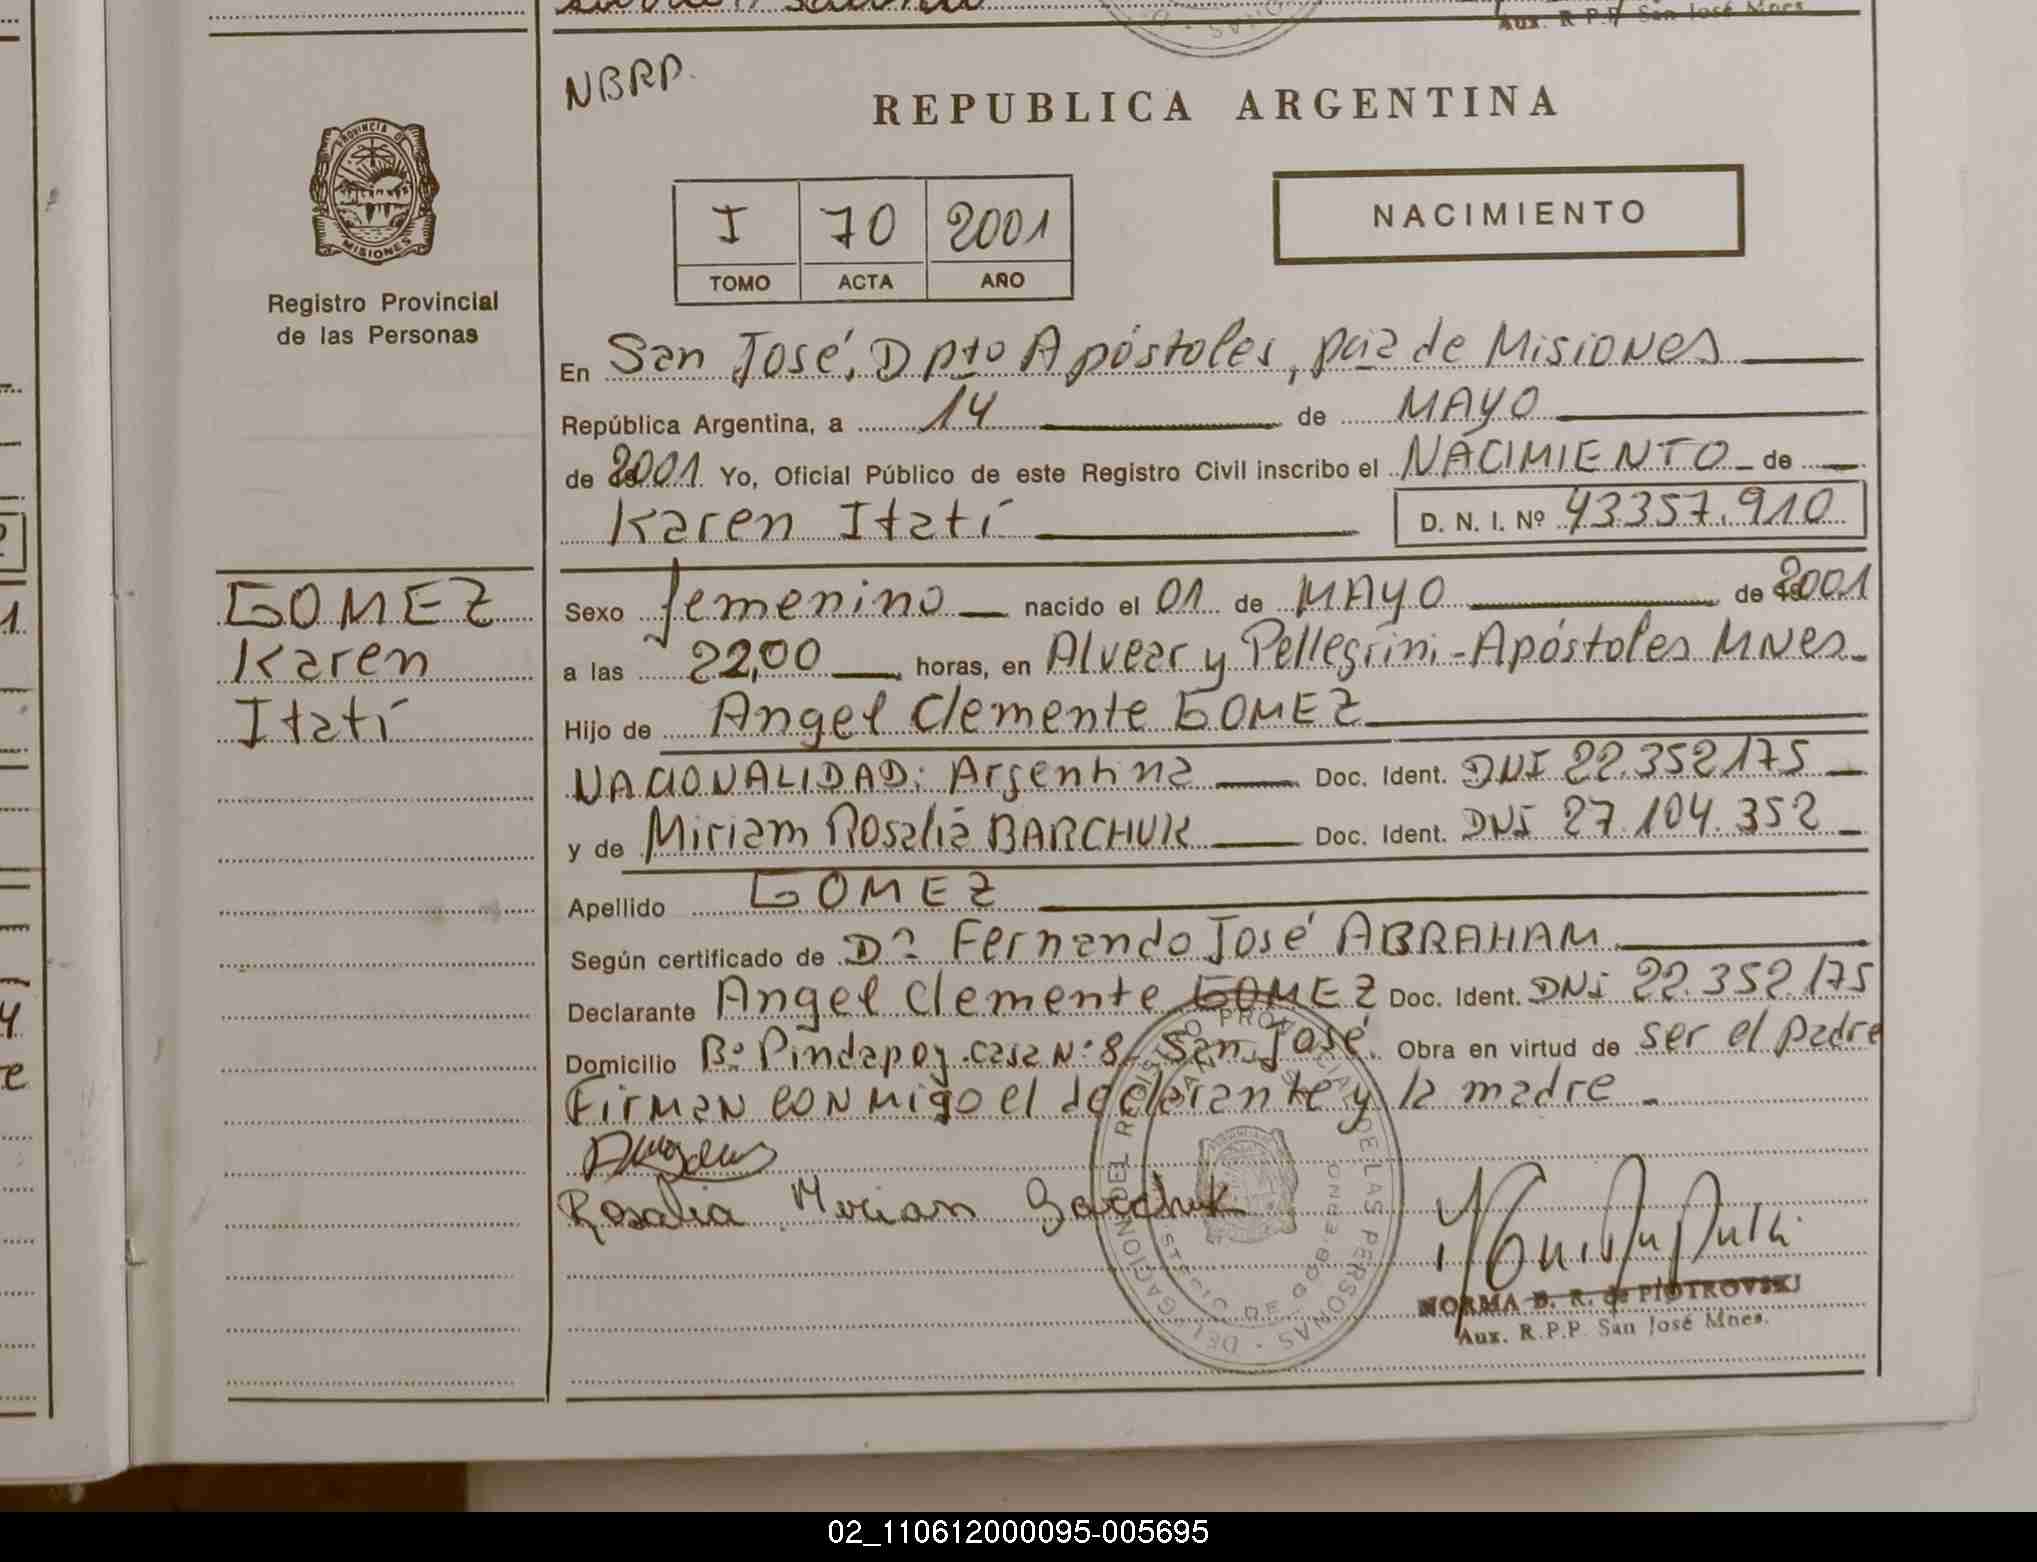 Aux. R.P.P. San José Mnes.
NBRP.
REPUBLICA ARGENTINA
PROVINCIA DE
MISIONES
Registro Provincial
de las Personas
I 70 2001
TOMO ACTA AÑO
NACIMIENTO
En San José, Dpto Apóstoles, pcia de Misiones
República Argentina, a 14 de MAYO
de 2001. Yo, Oficial Público de este Registro Civil inscribo el NACIMIENTO de
Karen Itatí D. N. I. Nº 43357.910
GOMEZ
Karen
Itatí
Sexo femenino nacido el 01 de MAYO de 2001
a las 22,00 horas, en Alvear y Pellegrini - Apóstoles MNes.
Hijo de Angel Clemente GOMEZ
NACIONALIDAD: Argentina Doc. Ident. DNI 22.352175
y de Miriam Rosalia BARCHUK Doc. Ident. DNI 27.104.352
Apellido GOMEZ
Según certificado de Dr. Fernando José ABRAHAM
Declarante Angel Clemente GOMEZ Doc. Ident. DNI 22.352.175
Domicilio Bº Pindapoy. casa Nº 8. San José. Obra en virtud de ser el padre
Firman conmigo el declarante y la madre
Rosalia Mirian Barchuk
DELEGACION DEL REGISTRO PROVINCIAL DE LAS PERSONAS
SAN JOSE
NORMA B. R. de PIOTROVSKI
Aux. R.P.P. San José Mnes.
02_110612000095-005695